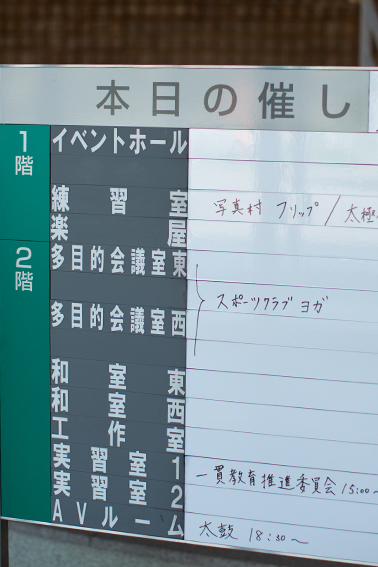 本日の催し
1階 イベントホール
練習室 写真村 フリップ / 太極
楽屋
2階 多目的会議室東
スポーツクラブ ヨガ
多目的会議室西
和室東
和室西
工作室
実習室1 一貫教育推進委員会 15:00~
実習室2
AVルーム 太鼓 18:30~